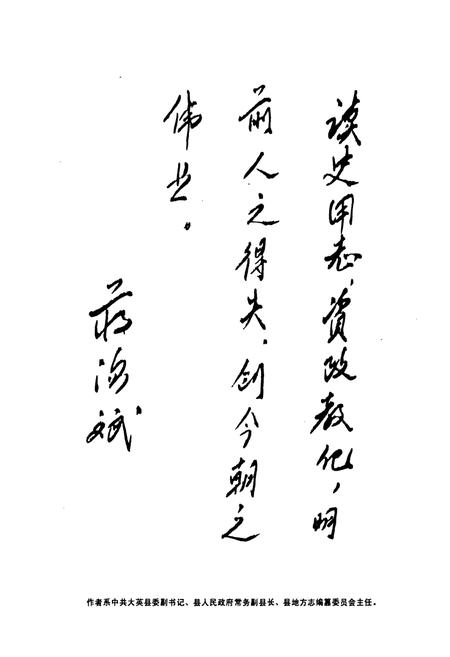 读史用志，资政教化，明
前人之得失，创今朝之
伟业。
蒋海斌
作者系中共大英县委副书记、县人民政府常务副县长、县地方志编纂委员会主任。